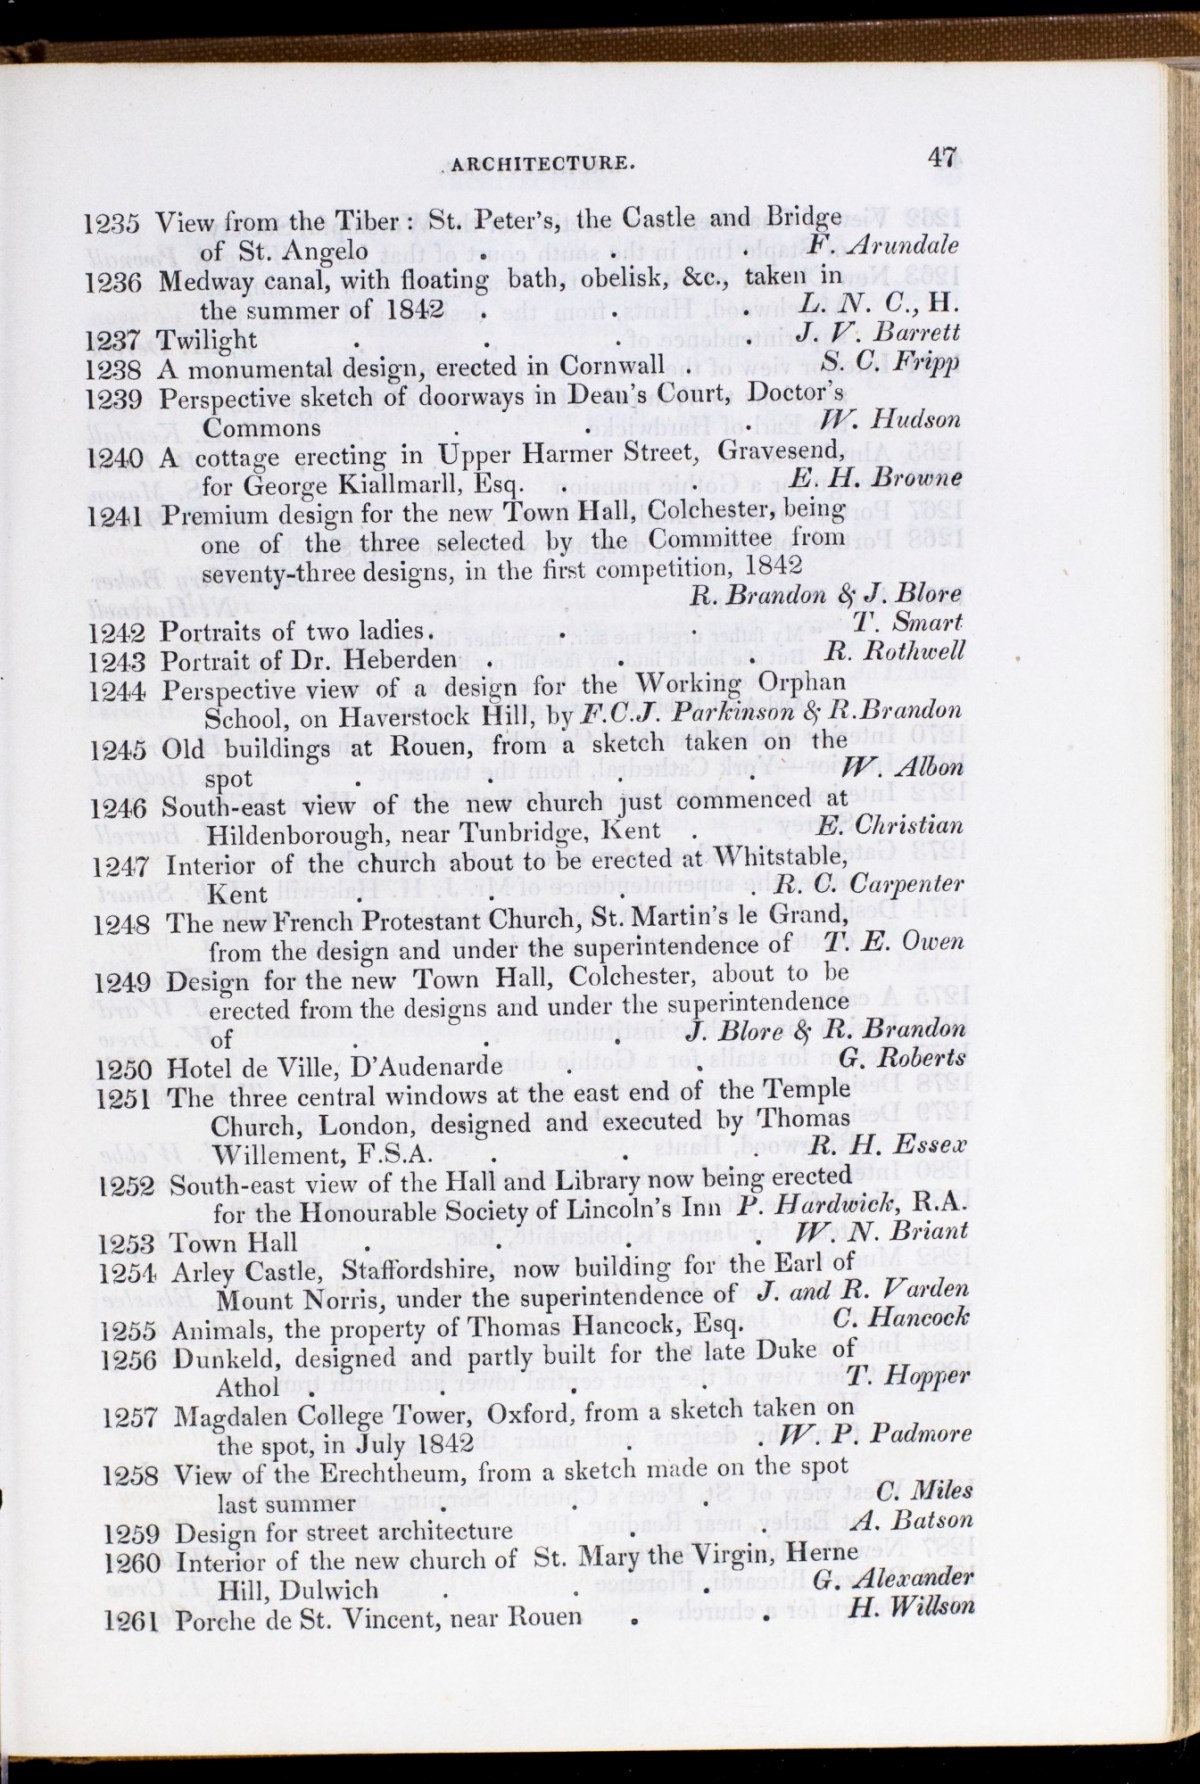 ARCHITECTURE. 47
1235 View from the Tiber : St. Peter's, the Castle and Bridge
of St. Angelo . . . F. Arundale
1236 Medway canal, with floating bath, obelisk, &c., taken in
the summer of 1842 . . . L. N. C., H.
1237 Twilight . . . . J. V. Barrett
1238 A monumental design, erected in Cornwall . S. C. Fripp
1239 Perspective sketch of doorways in Dean's Court, Doctor's
Commons . . . W. Hudson
1240 A cottage erecting in Upper Harmer Street, Gravesend,
for George Kiallmarll, Esq. . . E. H. Browne
1241 Premium design for the new Town Hall, Colchester, being
one of the three selected by the Committee from
seventy-three designs, in the first competition, 1842
R. Brandon & J. Blore
1242 Portraits of two ladies. . . T. Smart
1243 Portrait of Dr. Heberden . . . R. Rothwell
1244 Perspective view of a design for the Working Orphan
School, on Haverstock Hill, by F.C.J. Parkinson & R.Brandon
1245 Old buildings at Rouen, from a sketch taken on the
spot . . . . W. Albon
1246 South-east view of the new church just commenced at
Hildenborough, near Tunbridge, Kent . E. Christian
1247 Interior of the church about to be erected at Whitstable,
Kent . . . . R. C. Carpenter
1248 The new French Protestant Church, St. Martin's le Grand,
from the design and under the superintendence of T. E. Owen
1249 Design for the new Town Hall, Colchester, about to be
erected from the designs and under the superintendence
of . . . J. Blore & R. Brandon
1250 Hotel de Ville, D'Audenarde . . G. Roberts
1251 The three central windows at the east end of the Temple
Church, London, designed and executed by Thomas
Willement, F.S.A. . . . R. H. Essex
1252 South-east view of the Hall and Library now being erected
for the Honourable Society of Lincoln's Inn P. Hardwick, R.A.
1253 Town Hall . . . . W. N. Briant
1254 Arley Castle, Staffordshire, now building for the Earl of
Mount Norris, under the superintendence of J. and R. Varden
1255 Animals, the property of Thomas Hancock, Esq. C. Hancock
1256 Dunkeld, designed and partly built for the late Duke of
Athol . . . . T. Hopper
1257 Magdalen College Tower, Oxford, from a sketch taken on
the spot, in July 1842 . . W. P. Padmore
1258 View of the Erechtheum, from a sketch made on the spot
last summer . . . C. Miles
1259 Design for street architecture . . A. Batson
1260 Interior of the new church of St. Mary the Virgin, Herne
Hill, Dulwich . . . G. Alexander
1261 Porche de St. Vincent, near Rouen . . H. Willson